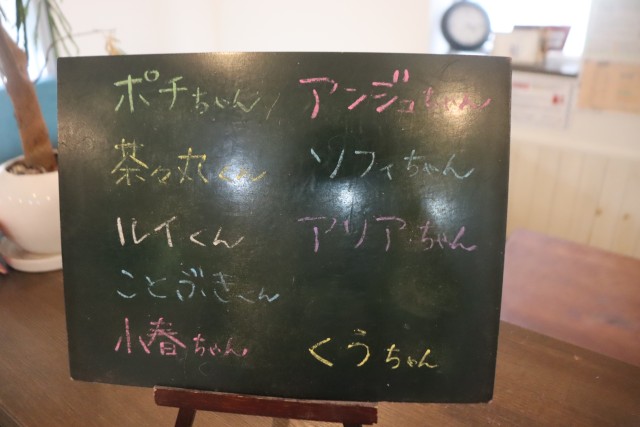 ポチちゃん
茶々丸くん
ルイくん
ことぶきくん
小春ちゃん
アンジュちゃん
ソフィちゃん
アリアちゃん
くうちゃん